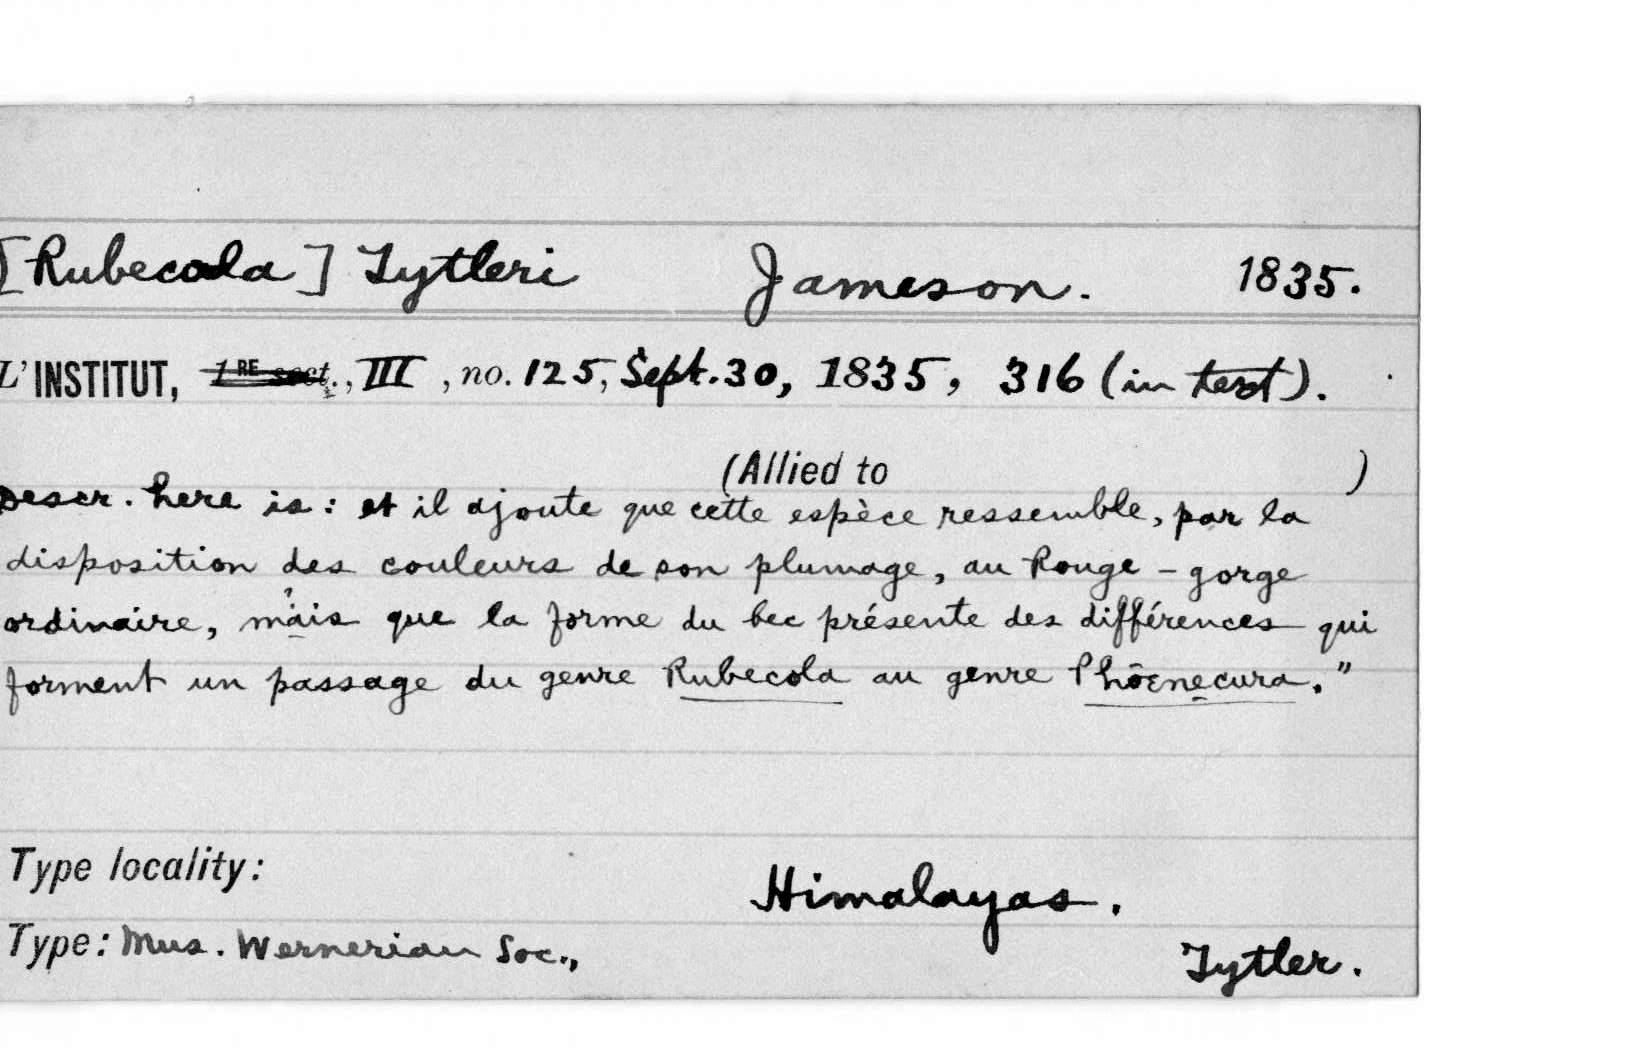 [Rubecola] Tytleri Jameson. 1835.
L'INSTITUT, 1RE sect., III, no. 125, Sept. 30, 1835, 316 (in text).
(Allied to )
Descr. here is: et il ajoute que cette espèce ressemble, par la
disposition des couleurs de son plumage, au Rouge-gorge
ordinaire, mais que la forme du bec présente des différences qui
forment un passage du genre Rubecola au genre Phöenecura."
Type locality: Himalayas.
Type: Mus. Wernerian Soc., Tytler.